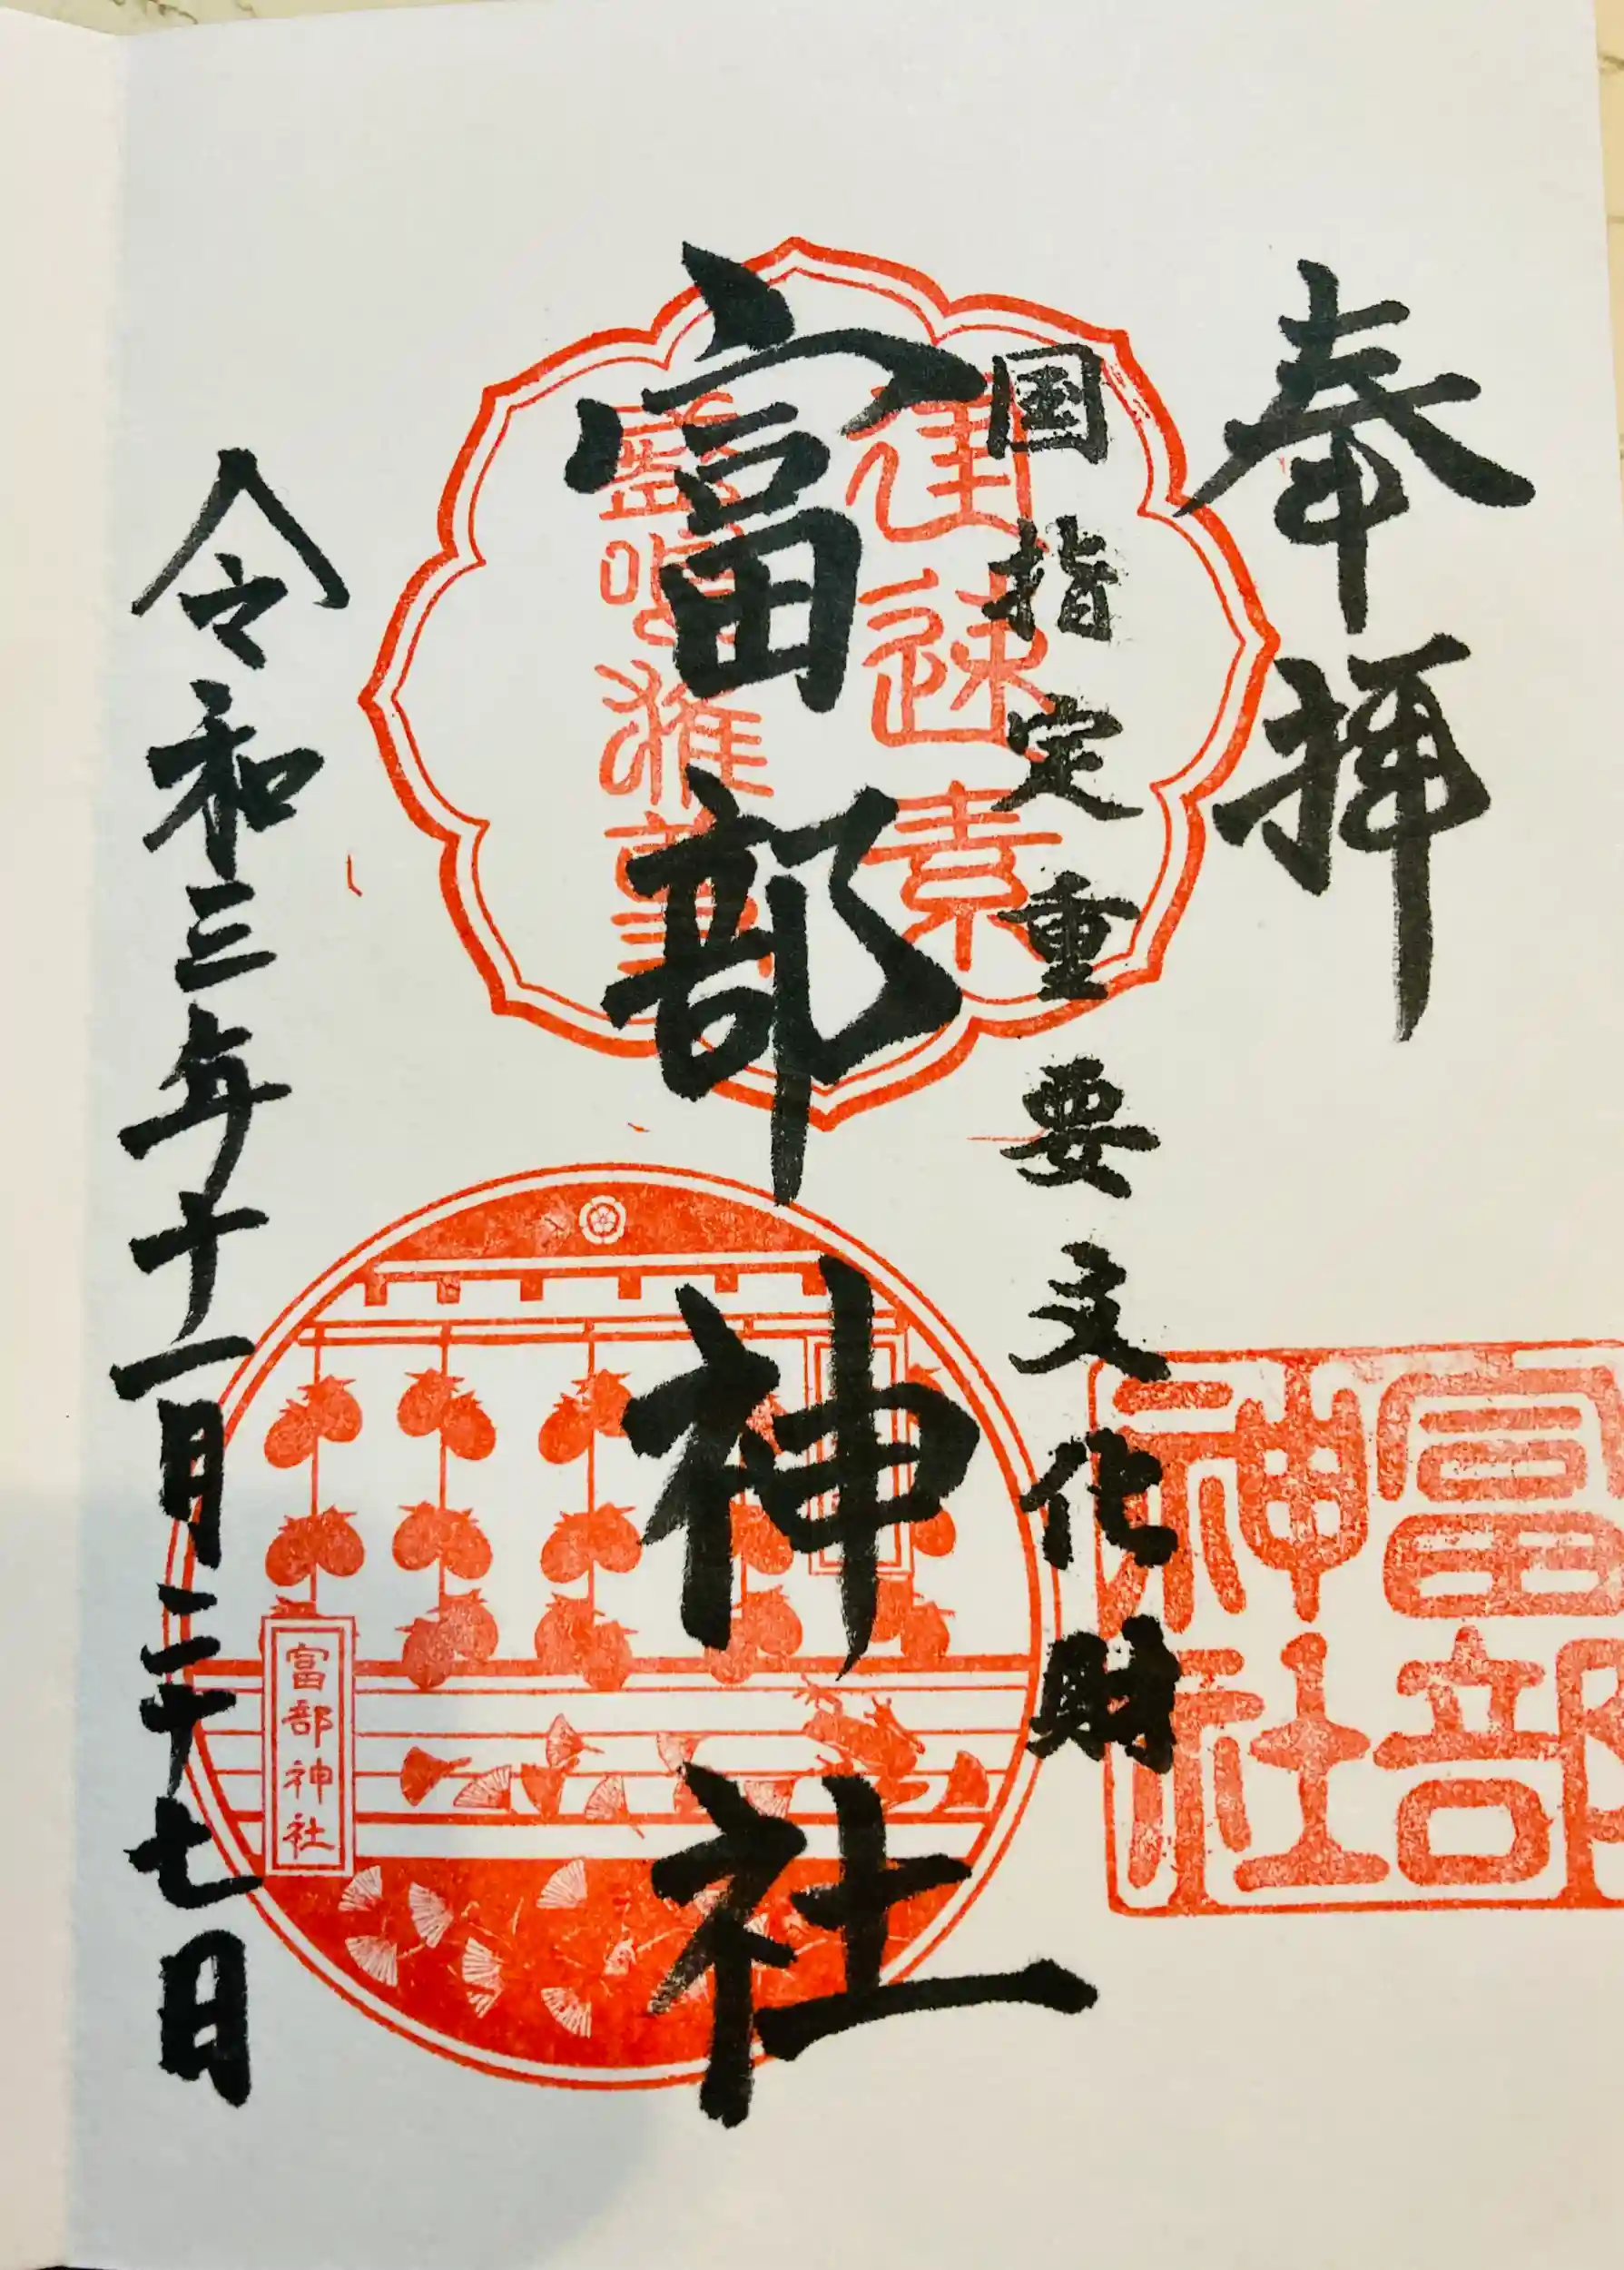 奉拝
国指定重要文化財
富部神社
令和三年十一月二十七日
建速素
盞嗚雅尊
富部神社
富部
神社